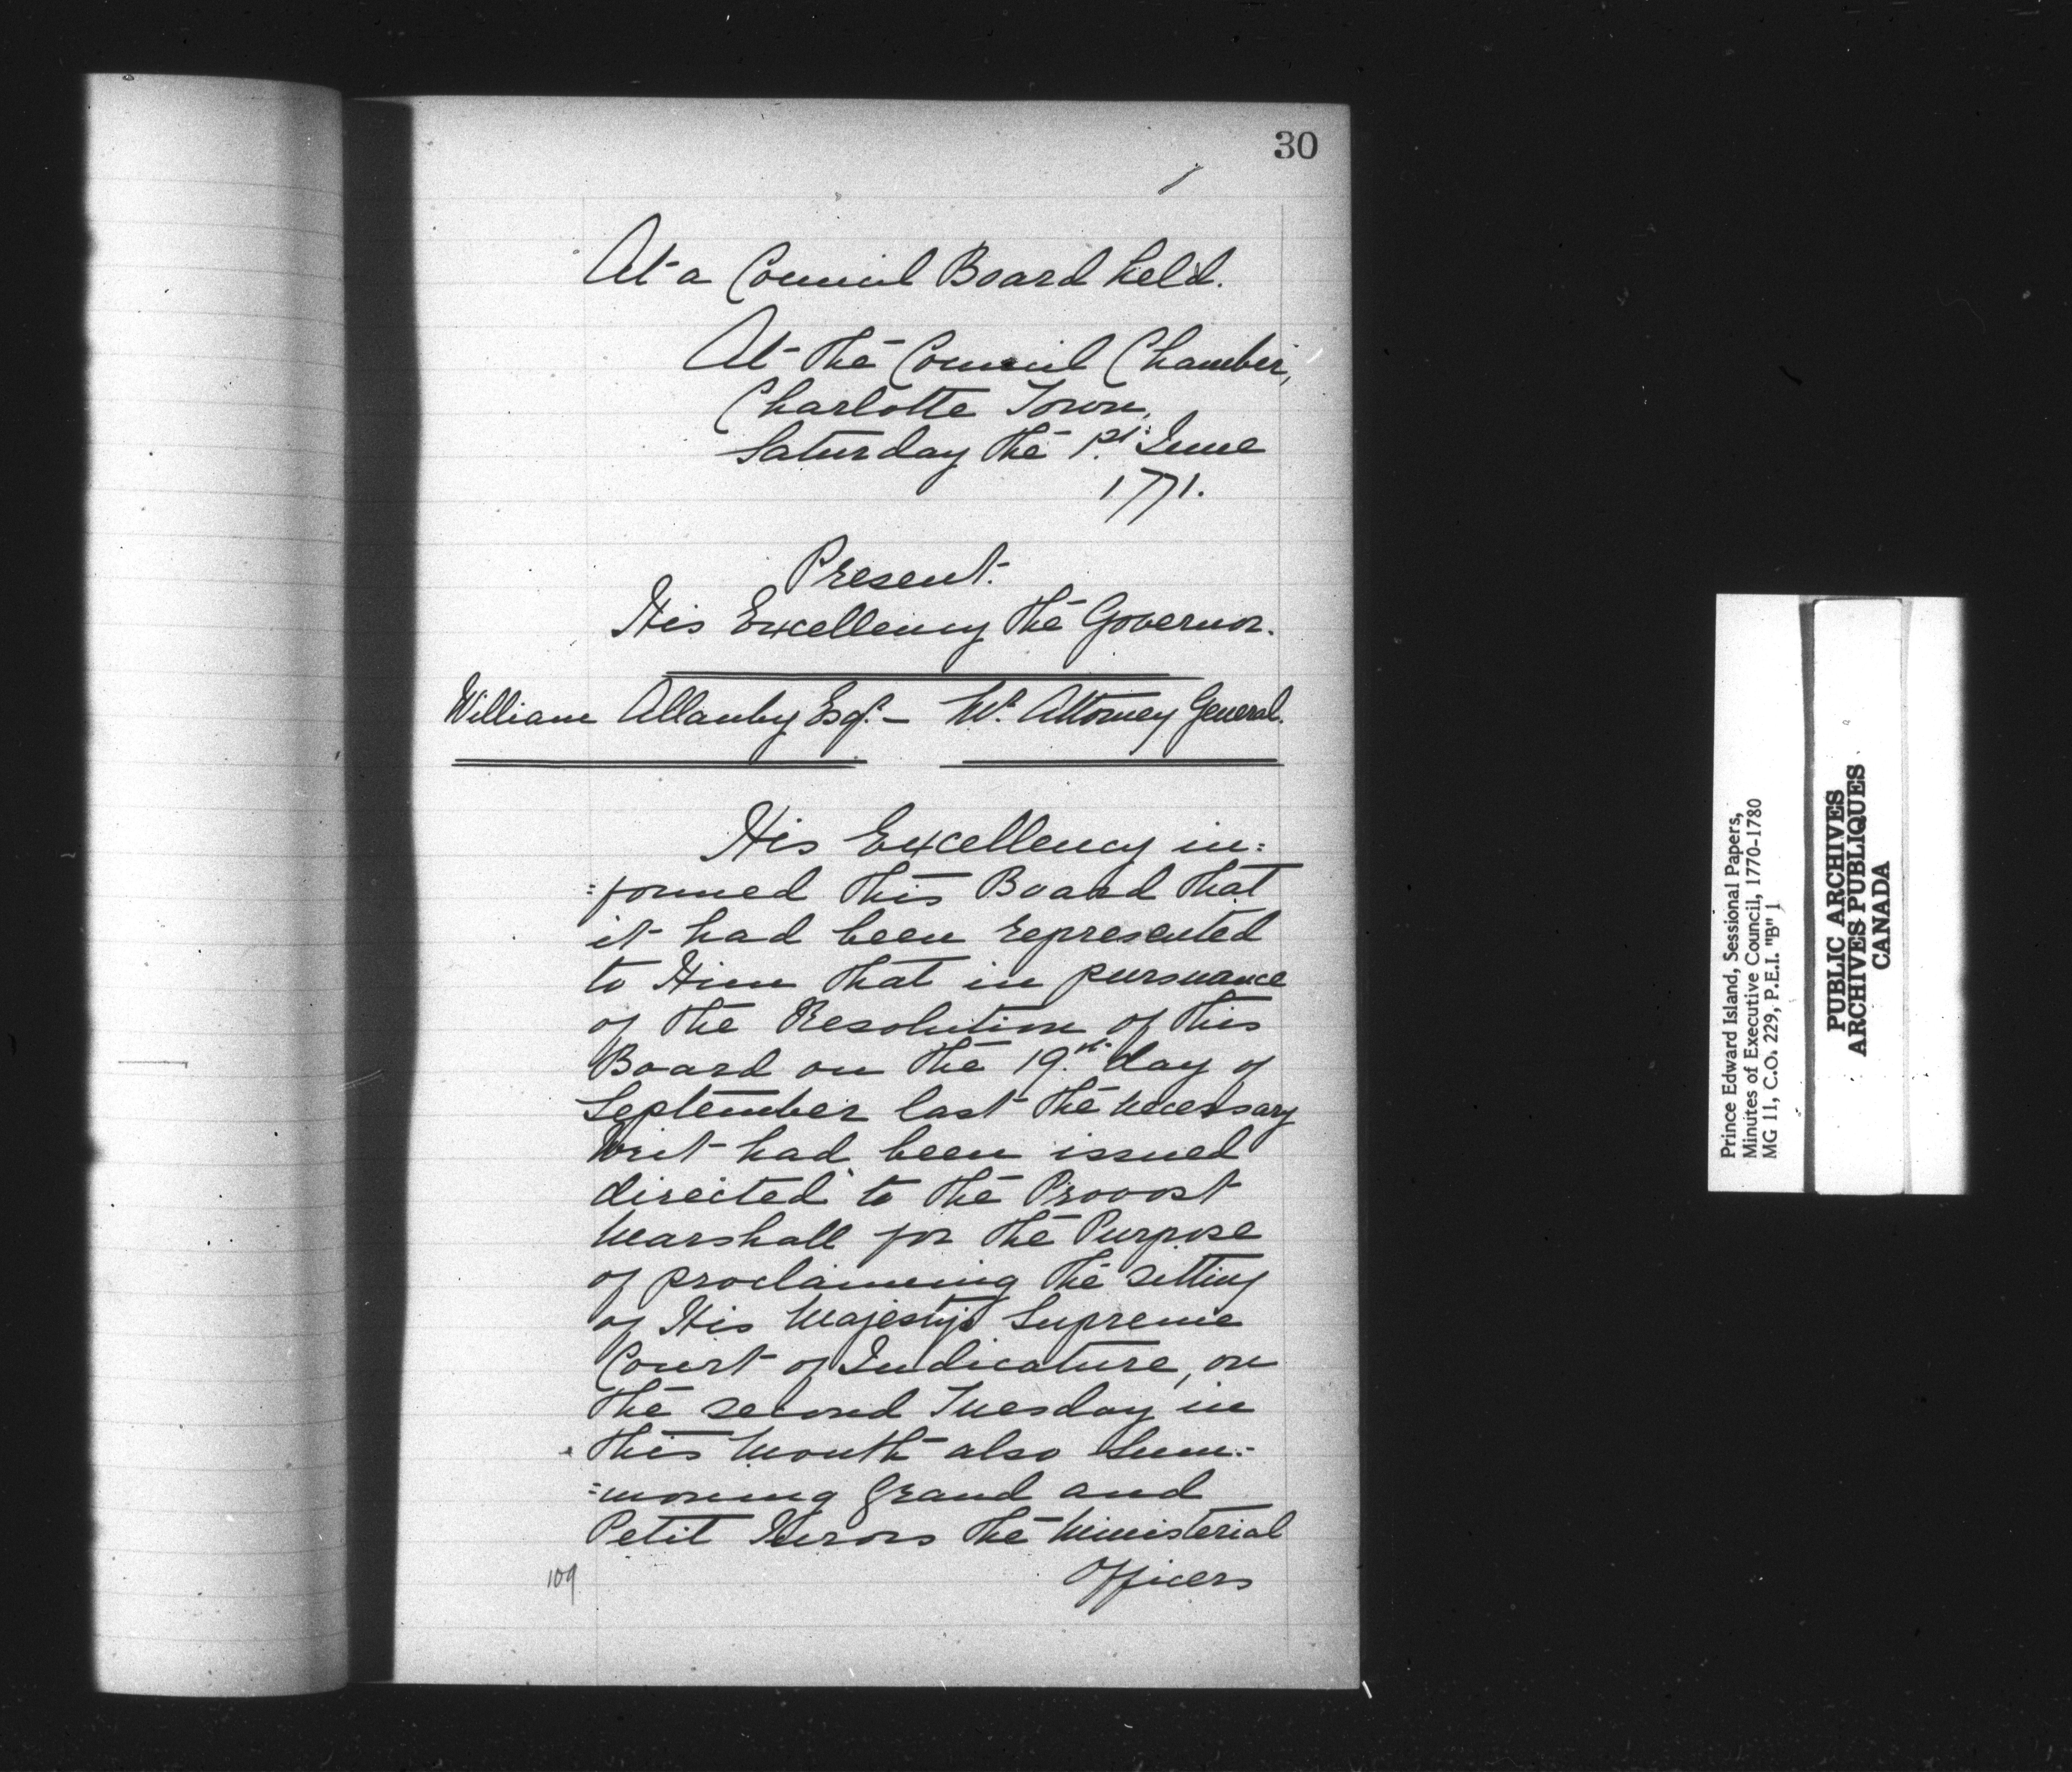 30
At a Council Board held.
At the Council Chamber,
Charlotte Town,
Saturday the 1st June
1771.
Present.
His Excellency the Governor.
William Allanby Esqr. — Mr. Attorney General.
His Excellency in=
=formed this Board that
it had been represented
to Him that in pursuance
of the Resolution of this
Board on the 19th day of
September last the necessary
Writ had been issued
directed to the Provost
Marshall for the Purpose
of proclaiming the sitting
of His Majesty's Supreme
Court of Judicature, on
the second Tuesday in
this Month also Sum=
=moning Grand and
Petit Jurors the Ministerial
Officers
109
Prince Edward Island, Sessional Papers,
Minutes of Executive Council, 1770-1780
MG 11, C.O. 229, P.E.I. "B" 1
PUBLIC ARCHIVES
ARCHIVES PUBLIQUES
CANADA